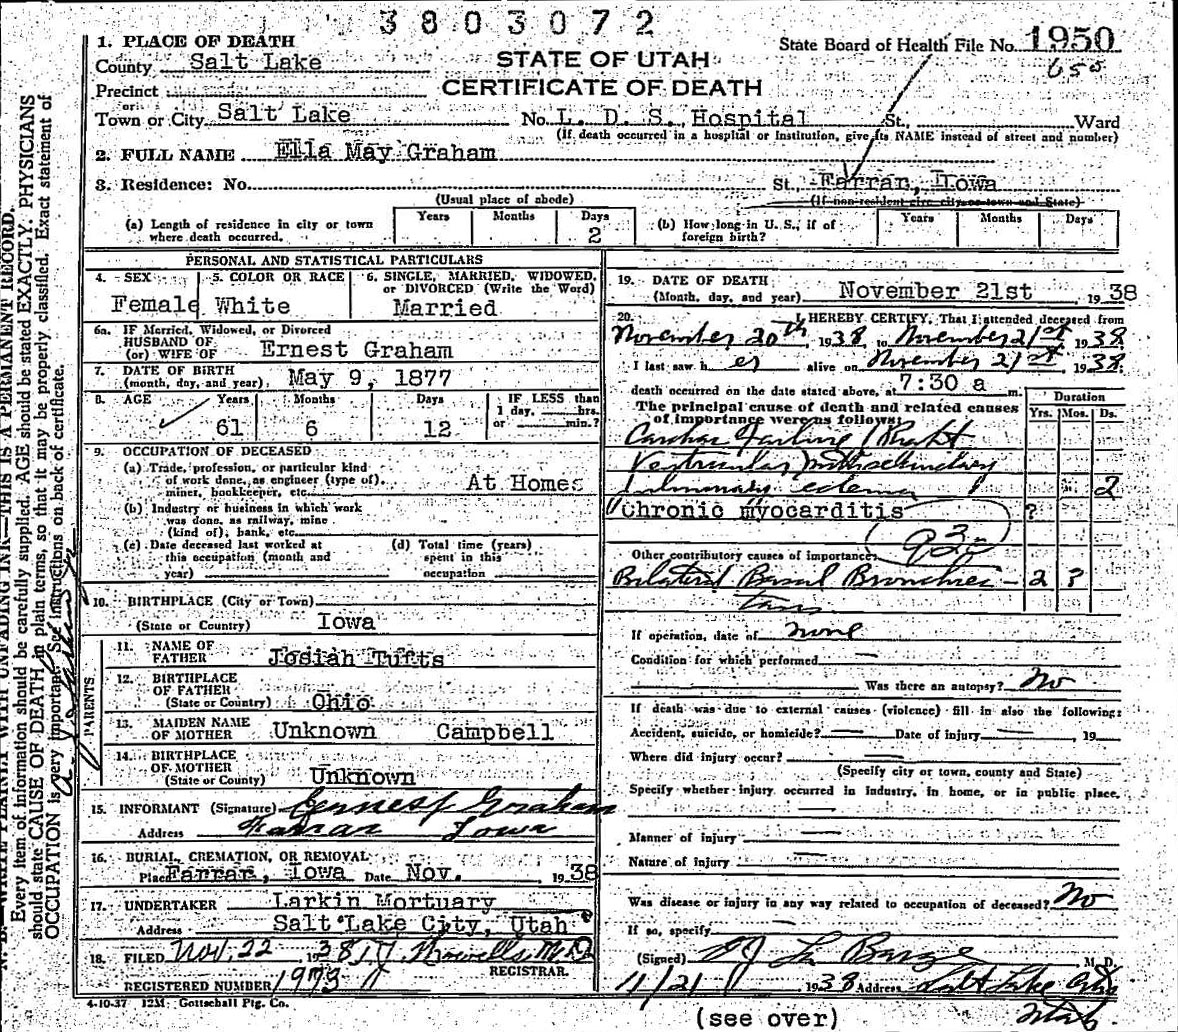 3803072
State Board of Health File No. 1950
650
STATE OF UTAH
CERTIFICATE OF DEATH
1. PLACE OF DEATH
County Salt Lake
Precinct
or
Town or City Salt Lake No. L. D. S. Hospital St., Ward
(If death occurred in a hospital or institution, give its NAME instead of street and number)
2. FULL NAME Ella May Graham
3. Residence: No. St., Farrar, Iowa
(Usual place of abode) (If non-resident give city or town and State)
(a) Length of residence in city or town where death occurred. Years Months Days 2
(b) How long in U. S., if of foreign birth? Years Months Days
PERSONAL AND STATISTICAL PARTICULARS
4. SEX Female
5. COLOR OR RACE White
6. SINGLE, MARRIED, WIDOWED, or DIVORCED (Write the Word) Married
6a. IF Married, Widowed, or Divorced
HUSBAND OF
(or) WIFE OF Ernest Graham
7. DATE OF BIRTH
(month, day, and year) May 9, 1877
8. AGE Years 61 Months 6 Days 12 IF LESS than 1 day, hrs. or min.?
9. OCCUPATION OF DECEASED
(a) Trade, profession, or particular kind
of work done, as engineer (type of),
miner, bookkeeper, etc. At Home
(b) Industry or business in which work
was done, as railway, mine
(kind of), bank, etc.
(c) Date deceased last worked at
this occupation (month and
year)
(d) Total time (years)
spent in this
occupation
10. BIRTHPLACE (City or Town)
(State or Country) Iowa
PARENTS
11. NAME OF
FATHER Josiah Tufts
12. BIRTHPLACE
OF FATHER
(State or Country) Ohio
13. MAIDEN NAME
OF MOTHER Unknown Campbell
14. BIRTHPLACE
OF MOTHER
(State or County) Unknown
15. INFORMANT (Signature) Ernest Graham
Address Farrar Iowa
16. BURIAL, CREMATION, OR REMOVAL
Place Farrar, Iowa Date Nov. 1938
17. UNDERTAKER Larkin Mortuary
Address Salt Lake City, Utah
18. FILED Nov. 22 1938 Howells, M.D.
REGISTRAR.
REGISTERED NUMBER 1973
4-10-37 12M. Gottschall Ptg. Co.
19. DATE OF DEATH
(Month, day, and year) November 21st 1938
20. I HEREBY CERTIFY, That I attended deceased from
November 20th, 1938 to November 21st 1938
I last saw her alive on November 21st 1938;
death occurred on the date stated above, at 7:30 a m.
The principal cause of death and related causes
of importance were as follows:
Duration
Yrs. Mos. Ds.
Cardiac Failure (Right
Ventricular
Pulmonary edema 2
Chronic myocarditis ?
93
Other contributory causes of importance:
Bilateral Basal Bronchiec- 2 ?
tasis
If operation, date of none
Condition for which performed
Was there an autopsy? No
If death was due to external causes (violence) fill in also the following:
Accident, suicide, or homicide? Date of injury , 19
Where did injury occur?
(Specify city or town, county and State)
Specify whether injury occurred in industry, in home, or in public place.
Manner of injury
Nature of injury
Was disease or injury in any way related to occupation of deceased? No
If so, specify
(Signed) La Barge M. D.
11/21 1938 Address Salt Lake City
Utah
(see over)
WRITE PLAINLY WITH UNFADING INK—THIS IS A PERMANENT RECORD.
Every item of information should be carefully supplied. AGE should be stated EXACTLY. PHYSICIANS
should state CAUSE OF DEATH in plain terms, so that it may be properly classified. Exact statement of
OCCUPATION is very important. See instructions on back of certificate.